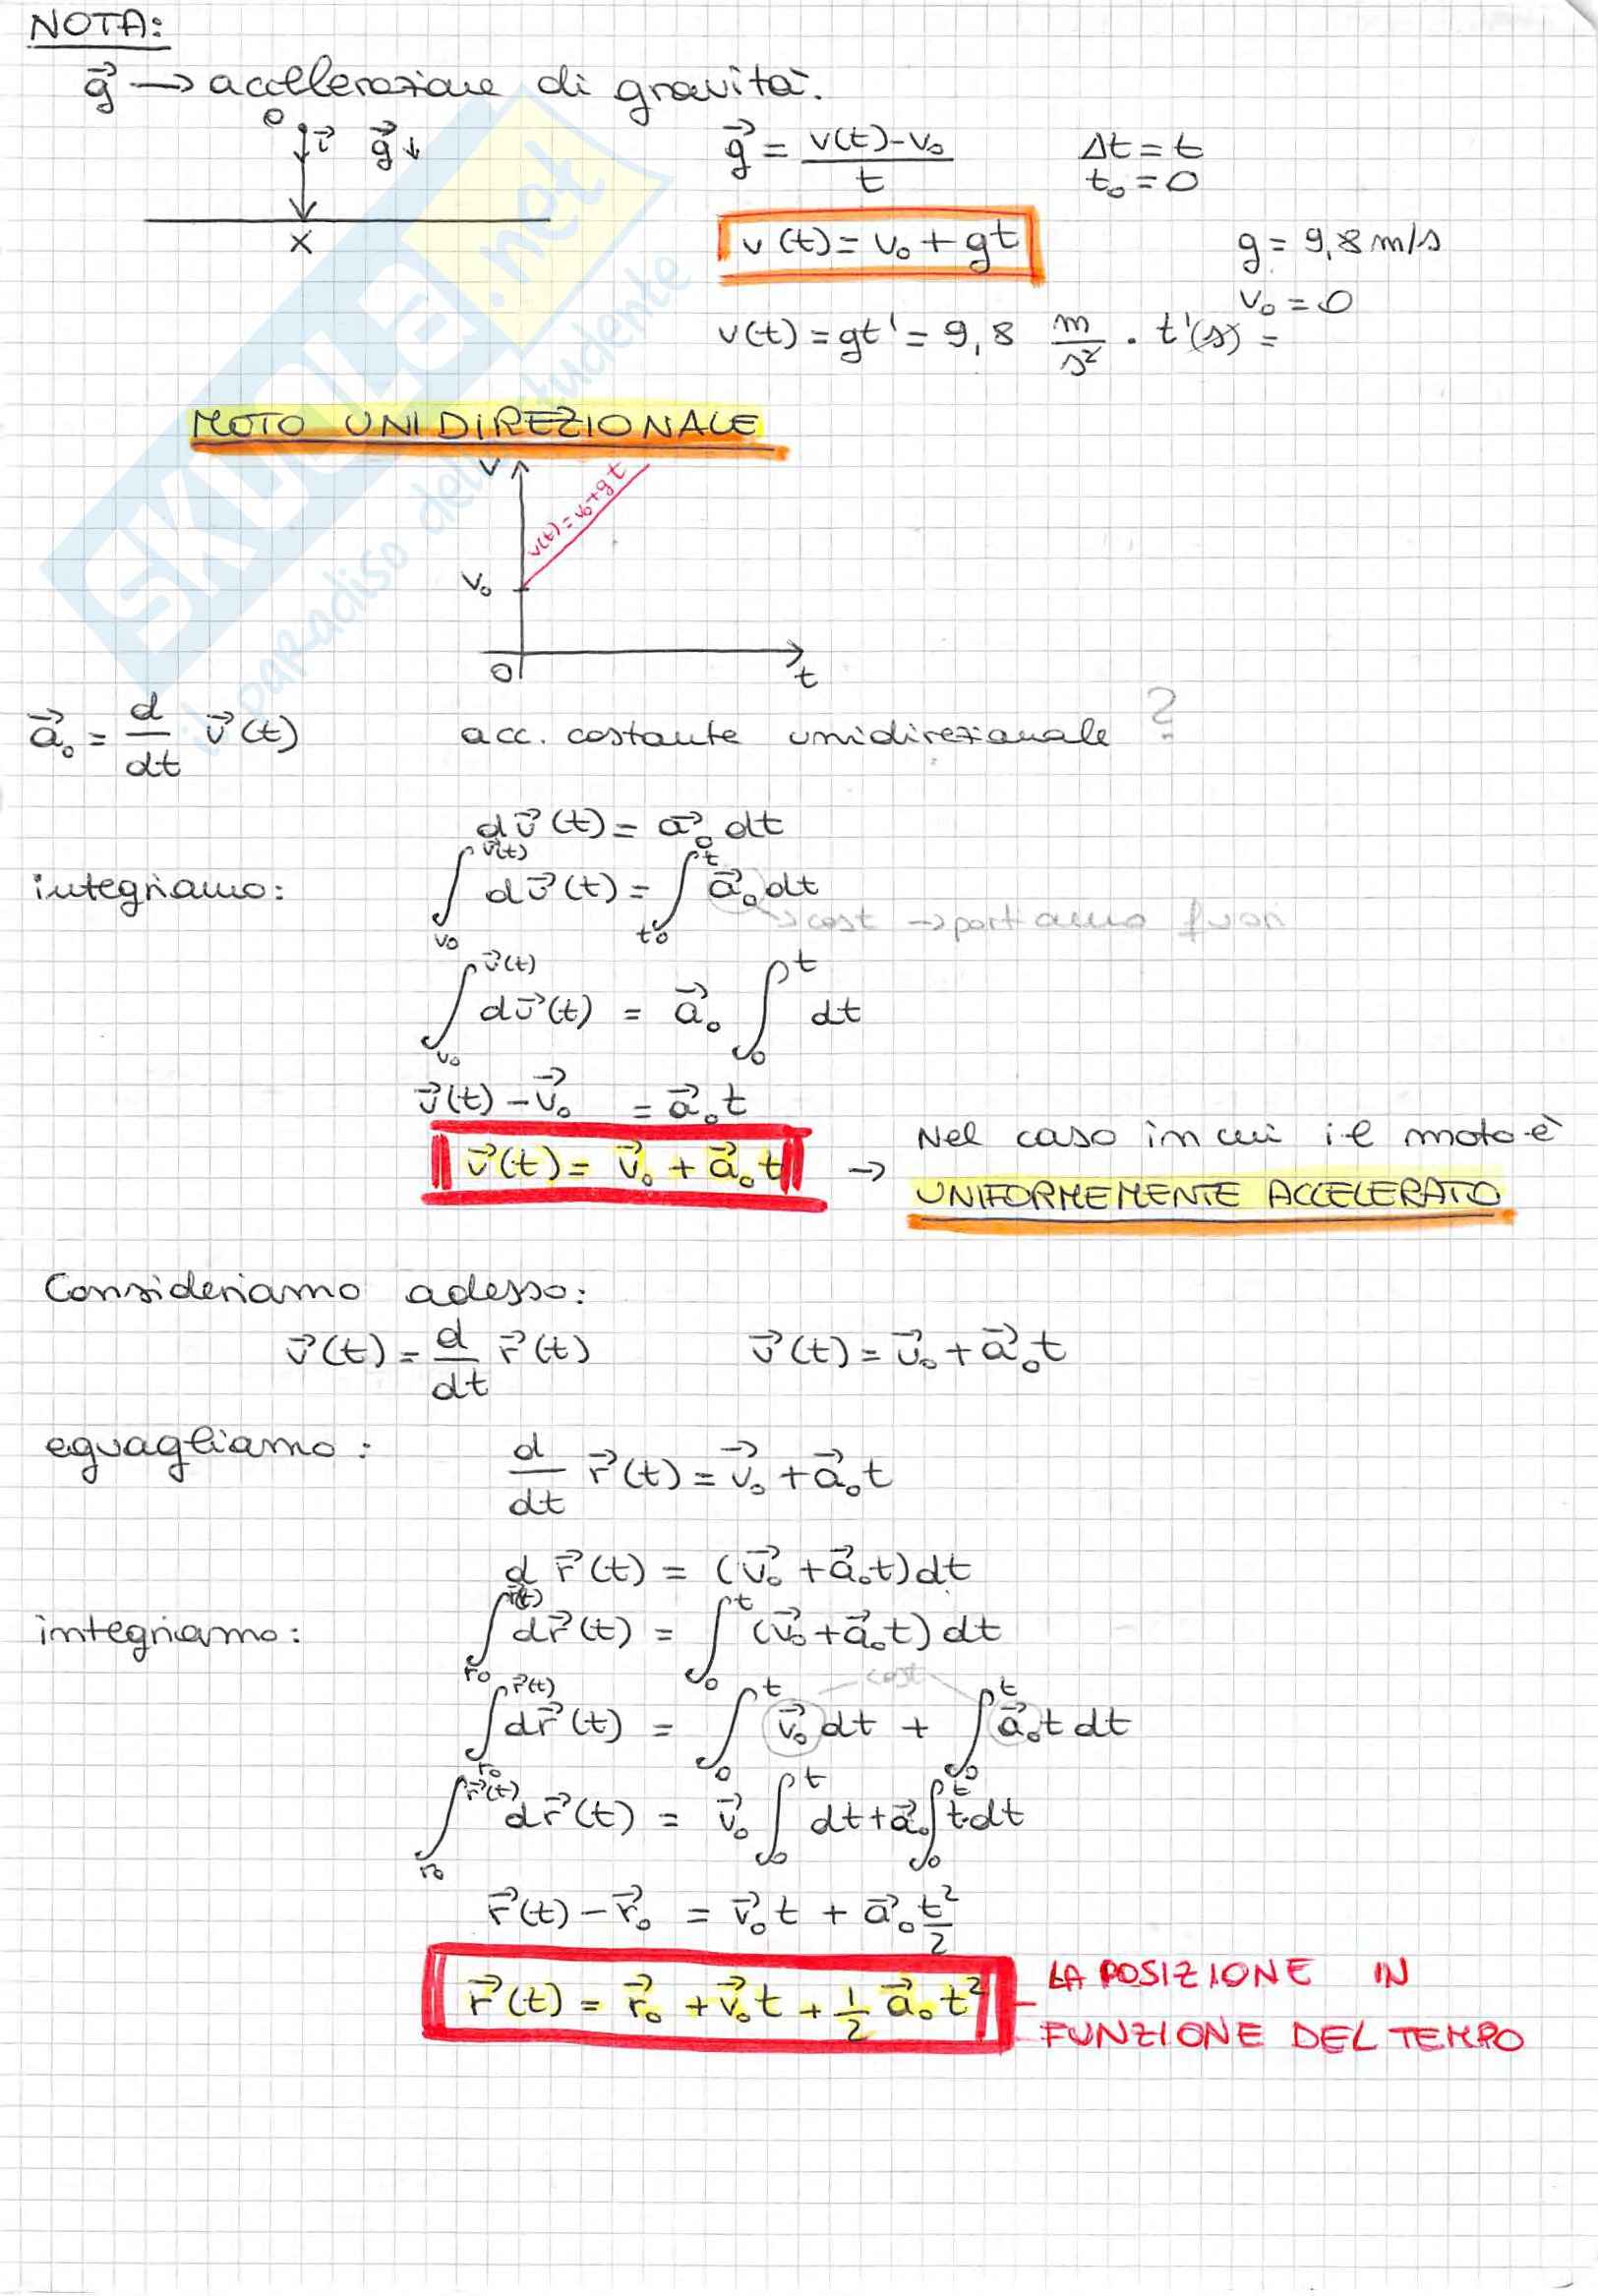 NOTA:
g⃗ → accellerazione di gravità.
O i⃗ g⃗ ↓
x
g⃗ = (v(t) - v₀) / t Δt = t
t₀ = 0
v(t) = v₀ + gt g = 9,8 m/s
v₀ = 0
v(t) = gt' = 9,8 m/s² · t'(s) =
MOTO UNIDIREZIONALE
v
v(t) = v₀ + gt
v₀
0 t
a⃗₀ = d/dt v⃗(t) acc. costante unidirezionale ?
dv⃗(t) = a⃗₀ dt
integriamo: ∫_{v₀}^{v⃗(t)} dv⃗(t) = ∫_{t₀}^{t} a⃗₀ dt
→ cost → portiamo fuori
∫_{v₀}^{v⃗(t)} dv⃗(t) = a⃗₀ ∫_{0}^{t} dt
v⃗(t) - v⃗₀ = a⃗₀t
v⃗(t) = v⃗₀ + a⃗₀t → Nel caso in cui il moto è
UNIFORMEMENTE ACCELERATO
Consideriamo adesso:
v⃗(t) = d/dt r⃗(t) v⃗(t) = v⃗₀ + a⃗₀t
eguagliamo: d/dt r⃗(t) = v⃗₀ + a⃗₀t
d r⃗(t) = (v⃗₀ + a⃗₀t)dt
integriamo: ∫_{r₀}^{r⃗(t)} dr⃗(t) = ∫_{0}^{t} (v⃗₀ + a⃗₀t) dt
cost
∫_{r₀}^{r⃗(t)} dr⃗(t) = ∫_{0}^{t} v⃗₀ dt + ∫_{0}^{t} a⃗₀ t dt
∫_{r₀}^{r⃗(t)} dr⃗(t) = v⃗₀ ∫_{0}^{t} dt + a⃗₀ ∫_{0}^{t} t dt
r⃗(t) - r⃗₀ = v⃗₀t + a⃗₀ t²/2
r⃗(t) = r⃗₀ + v⃗₀t + 1/2 a⃗₀ t² - LA POSIZIONE IN
FUNZIONE DEL TEMPO
SKUOLA.net
il paradiso dello studente